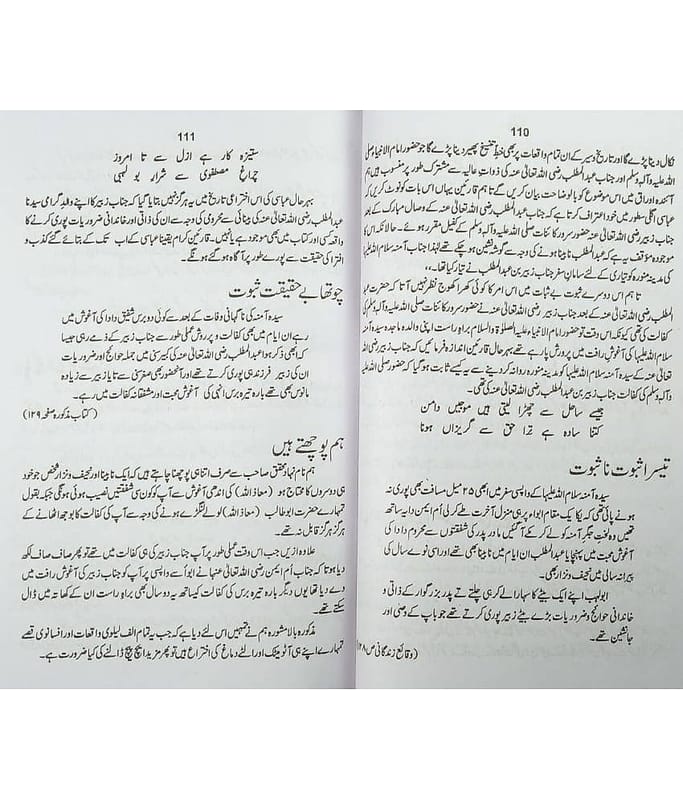 110
نکال دینا پڑے گا اور تاریخ و سیر کے ان تمام واقعات پر بھی خط تنسیخ پھیر دینا پڑے گا جو حضور امام الانبیاء صلی
اللہ علیہ وآلہ وسلم اور جناب عبدالمطلب رضی اللہ تعالیٰ عنہ کی ذوات عالیہ سے مشترک طور پر منسوب ہیں ہم
آئندہ اوراق میں اس موضوع کو بالوضاحت بیان کریں گے تاہم قارئین یہاں اس بات کو نوٹ کریں کہ
عباسی اگلی سطور میں خود اعتراف کرتا ہے کہ جناب عبدالمطلب رضی اللہ تعالیٰ عنہ کے وصال مبارک کے بعد
جناب زبیر رضی اللہ تعالیٰ عنہ حضور سرور کائنات صلی اللہ علیہ وآلہ وسلم کے کفیل مقرر ہوئے۔ حالانکہ اس کا
موجودہ موقف یہ ہے کہ عبدالمطلب نابینا ہونے کی وجہ سے گوشہ نشین ہو چکے تھے لہٰذا جناب آمنہ سلام اللہ علیہا
کی مدینہ منورہ کو تیاری کے لئے سامان سفر جناب زبیر بن عبدالمطلب نے تیار کیا تھا۔،،
تا ہم اس دوسرے ثبوت بے ثبات میں اس امر کا کوئی کھلا کھروج نظر نہیں آتا کہ حضرت عبد
المطلب رضی اللہ تعالیٰ عنہ کے زمانہ میں جناب زبیر رضی اللہ تعالیٰ عنہ نے حضور سرور کائنات صلی اللہ علیہ وآلہ وسلم کی
کفالت کی تھی کیونکہ اس وقت تو حضور امام الانبیاء علیہ الصلوٰۃ والسلام براہ راست اپنی والدہ ماجدہ سیدہ آمنہ
سلام اللہ علیہا کی آغوش رافت میں پرورش پا رہے تھے بہر حال قارئین اندازہ فرمائیں کہ جناب زبیر رضی اللہ
تعالیٰ عنہ کے سیدہ آمنہ سلام اللہ علیہا کو مدینہ منورہ روانہ کر دینے سے یہ کیسے ثابت ہو گیا کہ حضور صلی اللہ علیہ
وآلہ وسلم کی کفالت جناب زبیر بن عبدالمطلب رضی اللہ تعالیٰ عنہ کی تھی۔
جیسے ساحل سے چھڑا لیتی ہیں موجیں دامن
کتنا سادہ ہے ترا حق سے گریزاں ہونا
تیسرا ثبوت نا ثبوت
سیدہ آمنہ سلام اللہ علیہا کے واپسی سفر میں ابھی ۲۵ میل مسافت بھی پوری نہ
ہونے پائی تھی کہ یکا یک مقام ابواء پر ہی منزل آخرت طے کر لی اُم ایمن دایہ ساتھ
تھیں وہ لخت جگر آمنہ کو لے کر مکے آ گئیں مادر پدر کی شفقتوں سے محروم دادا کی
آغوش محبت میں پہنچا یا عبدالمطلب ان ایام میں نابینا بھی تھے اور اسی نوے سال کی
پیرانہ سالی میں نحیف و نزار بھی۔
ابولہب اپنے ایک بیٹے کا سہارا لے کر ہی چلتے تھے پدر بزرگوار کے ذاتی و
خاندانی حوائج و ضروریات بڑے بیٹے زبیر پوری کرتے تھے جو باپ کے وصی اور
جانشین تھے۔
(وقائع زندگانی ص ۱۲۸)
111
ستیزہ کار ہے ازل سے تا امروز
چراغ مصطفوی سے شرار بو لہبی
بہر حال عباسی کی اس اختراعی تاریخ میں یہ ہرگز نہیں بتایا گیا کہ جناب زبیر کا اپنے والد گرامی سیدنا
عبدالمطلب رضی اللہ تعالیٰ عنہ کی بینائی سے محرومی کی وجہ سے ان کی ذاتی اور خاندانی ضروریات پوری کرنے کا
واقعہ کسی اور کتاب میں بھی موجود ہے یا نہیں۔ قارئین کرام یقیناً عباسی کے اب تک کے بتائے گئے کذب و
افترا کی حقیقت سے پورے طور پر آگاہ ہو گئے ہونگے۔
چوتھا بے حقیقت ثبوت
سیدہ آمنہ کی ناگہانی وفات کے بعد سے کوئی دو برس شفیق دادا کی آغوش میں
رہے ان ایام میں بھی کفالت و پرورش عملی طور سے جناب زبیر کے ذمے رہی جیسا
کہ ابھی ذکر ہوا عبدالمطلب رضی اللہ تعالیٰ عنہ کی کبر سنی میں جملہ حوائج اور ضروریات
ان کی زبیر فرزند ہی پوری کرتے تھے اور آنحضور بھی صغر سنی سے تایا زبیر سے زیادہ
مانوس بھی تھے بارہ تیرہ برس انہی کی آغوش محبت اور مشفقانہ کفالت میں رہے۔
(کتاب مذکورہ صفحہ ۱۲۹)
ہم پوچھتے ہیں
ہم نام نہاد محقق صاحب سے صرف اتنا ہی پوچھنا چاہتے ہیں کہ ایک نابینا اور نحیف و نزار شخص جو خود
ہی دوسروں کا محتاج ہو (معاذ اللہ) کی اندھی آغوش سے آپ کو کونسی شفقتیں نصیب ہوئی ہونگی جبکہ بقول
تمہارے حضرت ابوطالب (معاذ اللہ) لولے لنگڑے ہونے کی وجہ سے آپ کی کفالت کا بوجھ اٹھانے کے
ہرگز ہرگز قابل نہ تھے۔
علاوہ ازیں جب اس وقت عملی طور پر آپ جناب زبیر کی ہی کفالت میں تھے تو پھر صاف صاف لکھ
دیا ہوتا کہ جناب اُم ایمن رضی اللہ تعالیٰ عنہا نے ابواء سے واپسی پر آپ کو جناب زبیر کی آغوش رافت میں
دے دیا تھا یوں دیگر بارہ تیرہ برس کی کفالت کیساتھ یہ دو سال بھی براہ راست ان کے کھاتہ میں ڈال
سکتے تھے۔
مذکورہ بالا مشورہ ہم نے تمہیں اس لئے دیا ہے کہ جب یہ تمام الف لیلوی واقعات اور افسانوی قصے
تمہارے اپنے ہی آٹو میٹک اور الٹے دماغ کی اختراع ہیں تو پھر مزید ایچ پیچ ڈالنے کی کیا ضرورت ہے۔